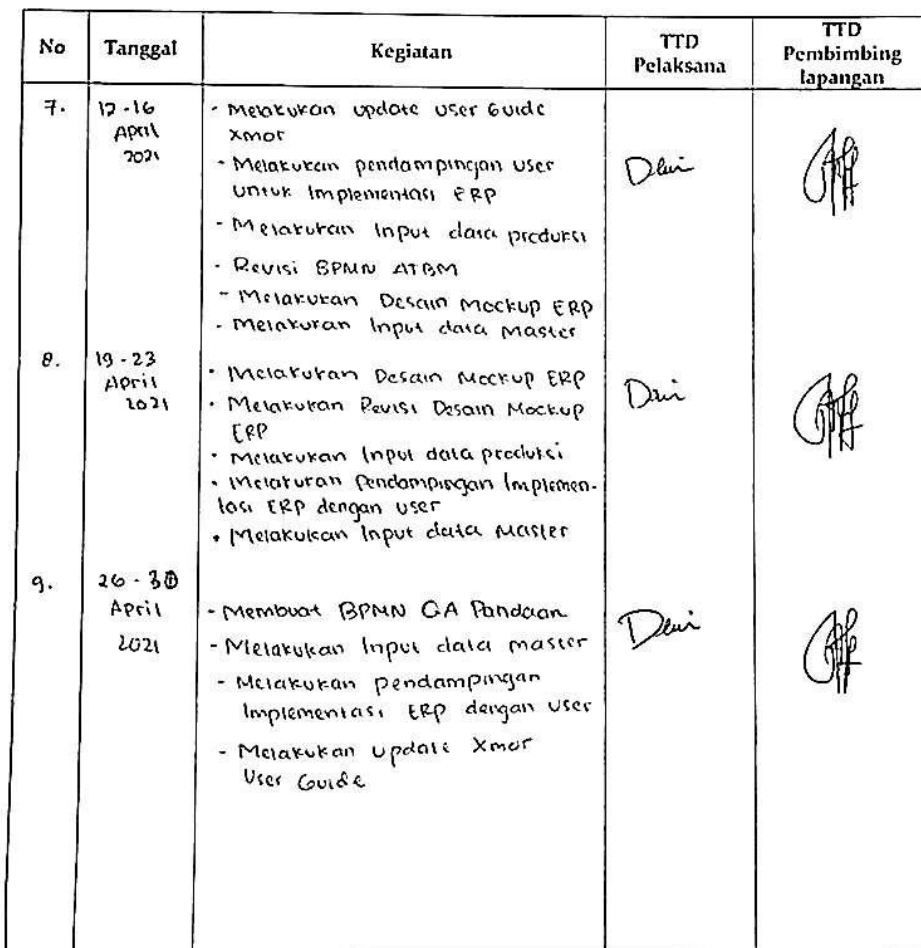 No Tanggal Kegiatan TTD Pelaksana TTD Pembimbing lapangan
7. 12-16 April 2021
- Melakukan update user Guide
xmor
- Melakukan pendampingan user
untuk Implementasi ERP
- Melakukan Input data produksi
- Revisi BPMN ATBM
- Melakukan Desain Mockup ERP
- Melakukan Input data Master
Dewi
8. 19-23 April 2021
• Melakukan Desain Mockup ERP
• Melakukan Revisi Desain Mockup
ERP
• Melakukan Input data produksi
• Melakukan Pendampingan Implemen-
tasi ERP dengan user
• Melakukan Input data Master
Dewi
9. 26-30 April 2021
- Membuat BPMN GA Pandaan
- Melakukan Input data master
- Melakukan pendampingan
Implementasi ERP dengan user
- Melakukan Update Xmor
User Guide
Dewi